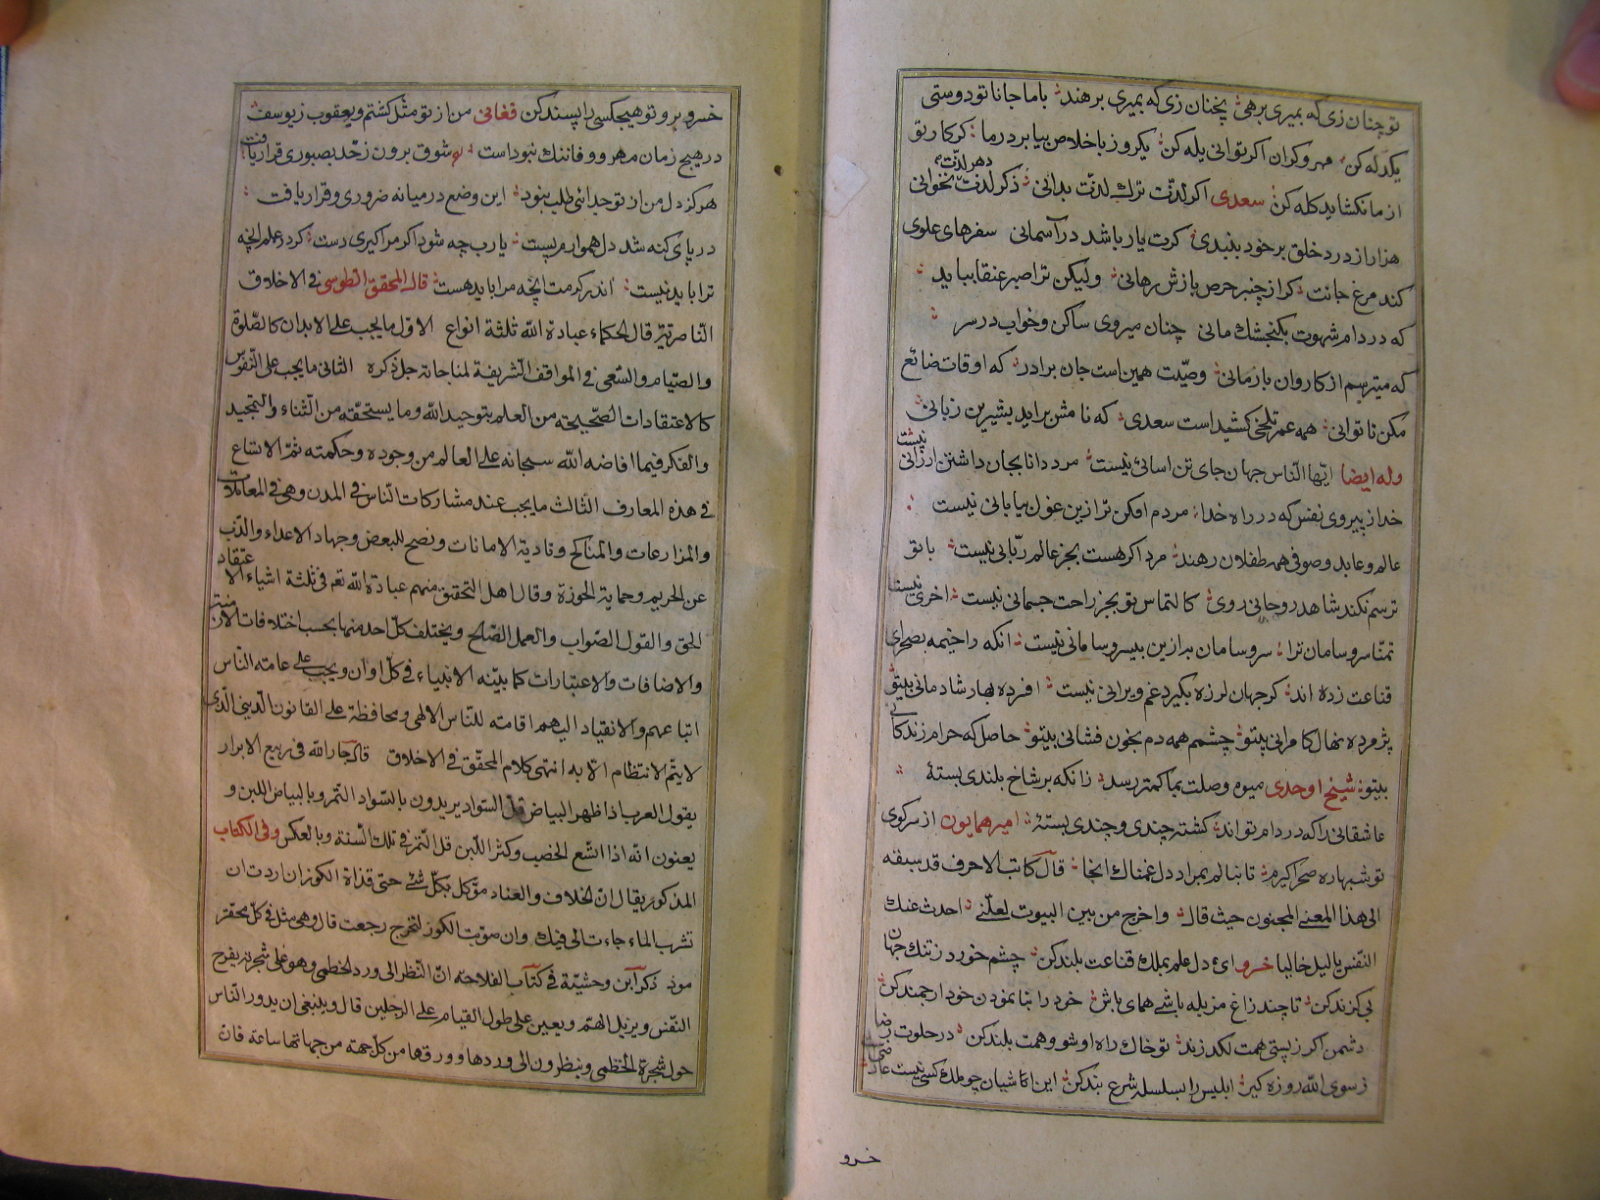 تو چنان زی که بمیری برهی نه چنان زی که بمیری برهند با ما جانا تو دوستی
یکدله کن مهر وکران اکر توانی یله کن یکروز باخلاص بیا بر در ما کر کار تو
از ما نکشاید کله کن سعدی اکر لذت ترك لذت بدانی دکر لذت نفس لذت نخوانی
هزار از در خلق بر خود ببندی کرت یار باشد در آسمانی سفرهای علوی
کند مرغ جانت کر از چنبر حرص بازش رهانی ولیکن ترا صبر عنقا بباید
که در دام شهوت بکنجشك مانی چنان میروی ساکن وخواب در سر
که میترسم از کاروان باز مانی وصیت همین است جان برادر که اوقات ضائع
مکن تا توانی همه عمر تلخی کشیدست سعدی که نامش برآید بشیرین زبانی
وله ایضا ایها الناس جهان جای تن اسانی نیست مرد دانا بجهان داشتن ارزانی نیست
خداز پیروی نفس که در راه خدا مردم افکن تر ازین غول بیابانی نیست
عالم وعابد وصوفی همه طفلان رهند مرد اکر هست بجز عالم ربانی نیست با تو
ترسم نکند شاهد روحانی روی کالتماس تو بجز راحت جسمانی نیست اخری نیست
تمنا سر وسامان ترا سر وسامان به ازین بیسر وسامانی نیست انکه را خیمه بصحرای
قناعت زده اند کر جهان لرزه بکیرد غم ویرانی نیست افرده بهار شادمانی بیتو
پژمرده نهال کامرانی بیتو چشمم همه دم بخون فشانی بیتو حاصل که حرام زندکانی
بیتو شیخ اوحدی میوه وصلت بما کمتر رسد زانکه بر شاخ بلندی بستهٔ
عاشقانی را که در دام تو اند کشته چندی وچندی بستهٔ امیر همایون از سر کوی
تو شبها ره صحرا کیرم تا بنالم بمراد دل غمناك انجا قال کاتب الاحرف قد سبقه
الی هذا المعنی المجنون حیث قال واخرج من بین البیوت لعلنی احدث عنك
النفس بالیل خالیا خسرو ای دل علم بملك قناعت بلند کن چشم خورد ز تنك جهان
بی کزند کن تا چند زاغ مزبله باشی همای باش خود را بنا نمودن خود ارجمند کن
دشمن اکر ز پستی همت لکد زند تو خاك راه او شو وهمت بلند کن در خلوت رضا
ز سوی الله روزه کیر ابلیس را بسلسله شرع بند کن این آشیان چو ملك کسی نیست
خسرو
خسرو برو تو هیچکسی را پسند کن فغانی من از تو مثل کشتم ویعقوب ز یوسف
در هیچ زمان مهر ووفا ننك نبود است شوق برون زحد بصبوری قرار یافت
هرکز دل من از تو جدائی طلب نبود این وضع در میانه ضروری وقرار یافت
در پای کنه شد دل هموارم پست یا رب چه شود اکر مرا کیری دست کر در عملم انچه
ترا باید نیست اندر کرمت انچه مرا باید هست قال المحقق الطوسی فی الاخلاق
الناصریة قال الحکماء عبادة الله ثلثة انواع الاول ما یجب علی الابدان کالصلوة
والصیام والسعی فی المواقف الشریفة لمناجاته جل ذکره الثانی ما یجب علی النفوس
کالاعتقادات الصحیحته من العلم بتوحید الله وما یستحقه من الثناء والتمجید
والفکر فیما افاضه الله سبحانه علی العالم من وجوده وحکمته ثم الاتساع
فی هذه المعارف الثالث ما یجب عند مشارکات الناس فی المدن وهی فی المعاملات
والمزارعات والمناکح وتادیة الامانات ونصح للبعض وجهاد الاعداء والذب
عن الحریم وحمایة الحوزة وقال اهل التحقیق منهم عبادة الله تعم فی ثلثة اشیاء الاعتقاد
الحق والقول الصواب والعمل الصالح ویختلف کل احد منها بحسب اختلافات الازمنة
والاضافات والاعتبارات کما بینه الانبیاء فی کل اوان ویجب علی عامته الناس
اتباعهم والانقیاد الیهم اقامته للناس الالهی ومحافظة علی القانون الدینی الذی
لا یتم الانتظام الا به انتهی کلام المحقق فی الاخلاق قال جار الله فی ربیع الابرار
یقول العرب اذا ظهر البیاض قل السواد یریدون بالسواد التمر وبالبیاض اللبن و
یعنون انه اذا اتسع الخصب وکثر اللبن قل التمر فی تلك السنة وبالعکس وفی الکتاب
المذکور یقال ان الخلاف والعناد موکل بکل شئ حتی قذاة الکوز ان اردت ان
تشرب الماء جاءت الی فیك وان صوبت الکوز لتخرج رجعت قال وهی مثل فی کل محقر
موذ ذکر ابن وحشیة فی کتاب الفلاحه ان النظر الی ورد الخطمی وهو علی شجرته یفرح
النفس ویزیل الهم ویعین علی طول القیام علی الرجلین قال وینبغی ان یدور الناس
حول شجرة الخطمی وینظرون الی وردها وورقها من کل جهته من جهاتها ساعة فان